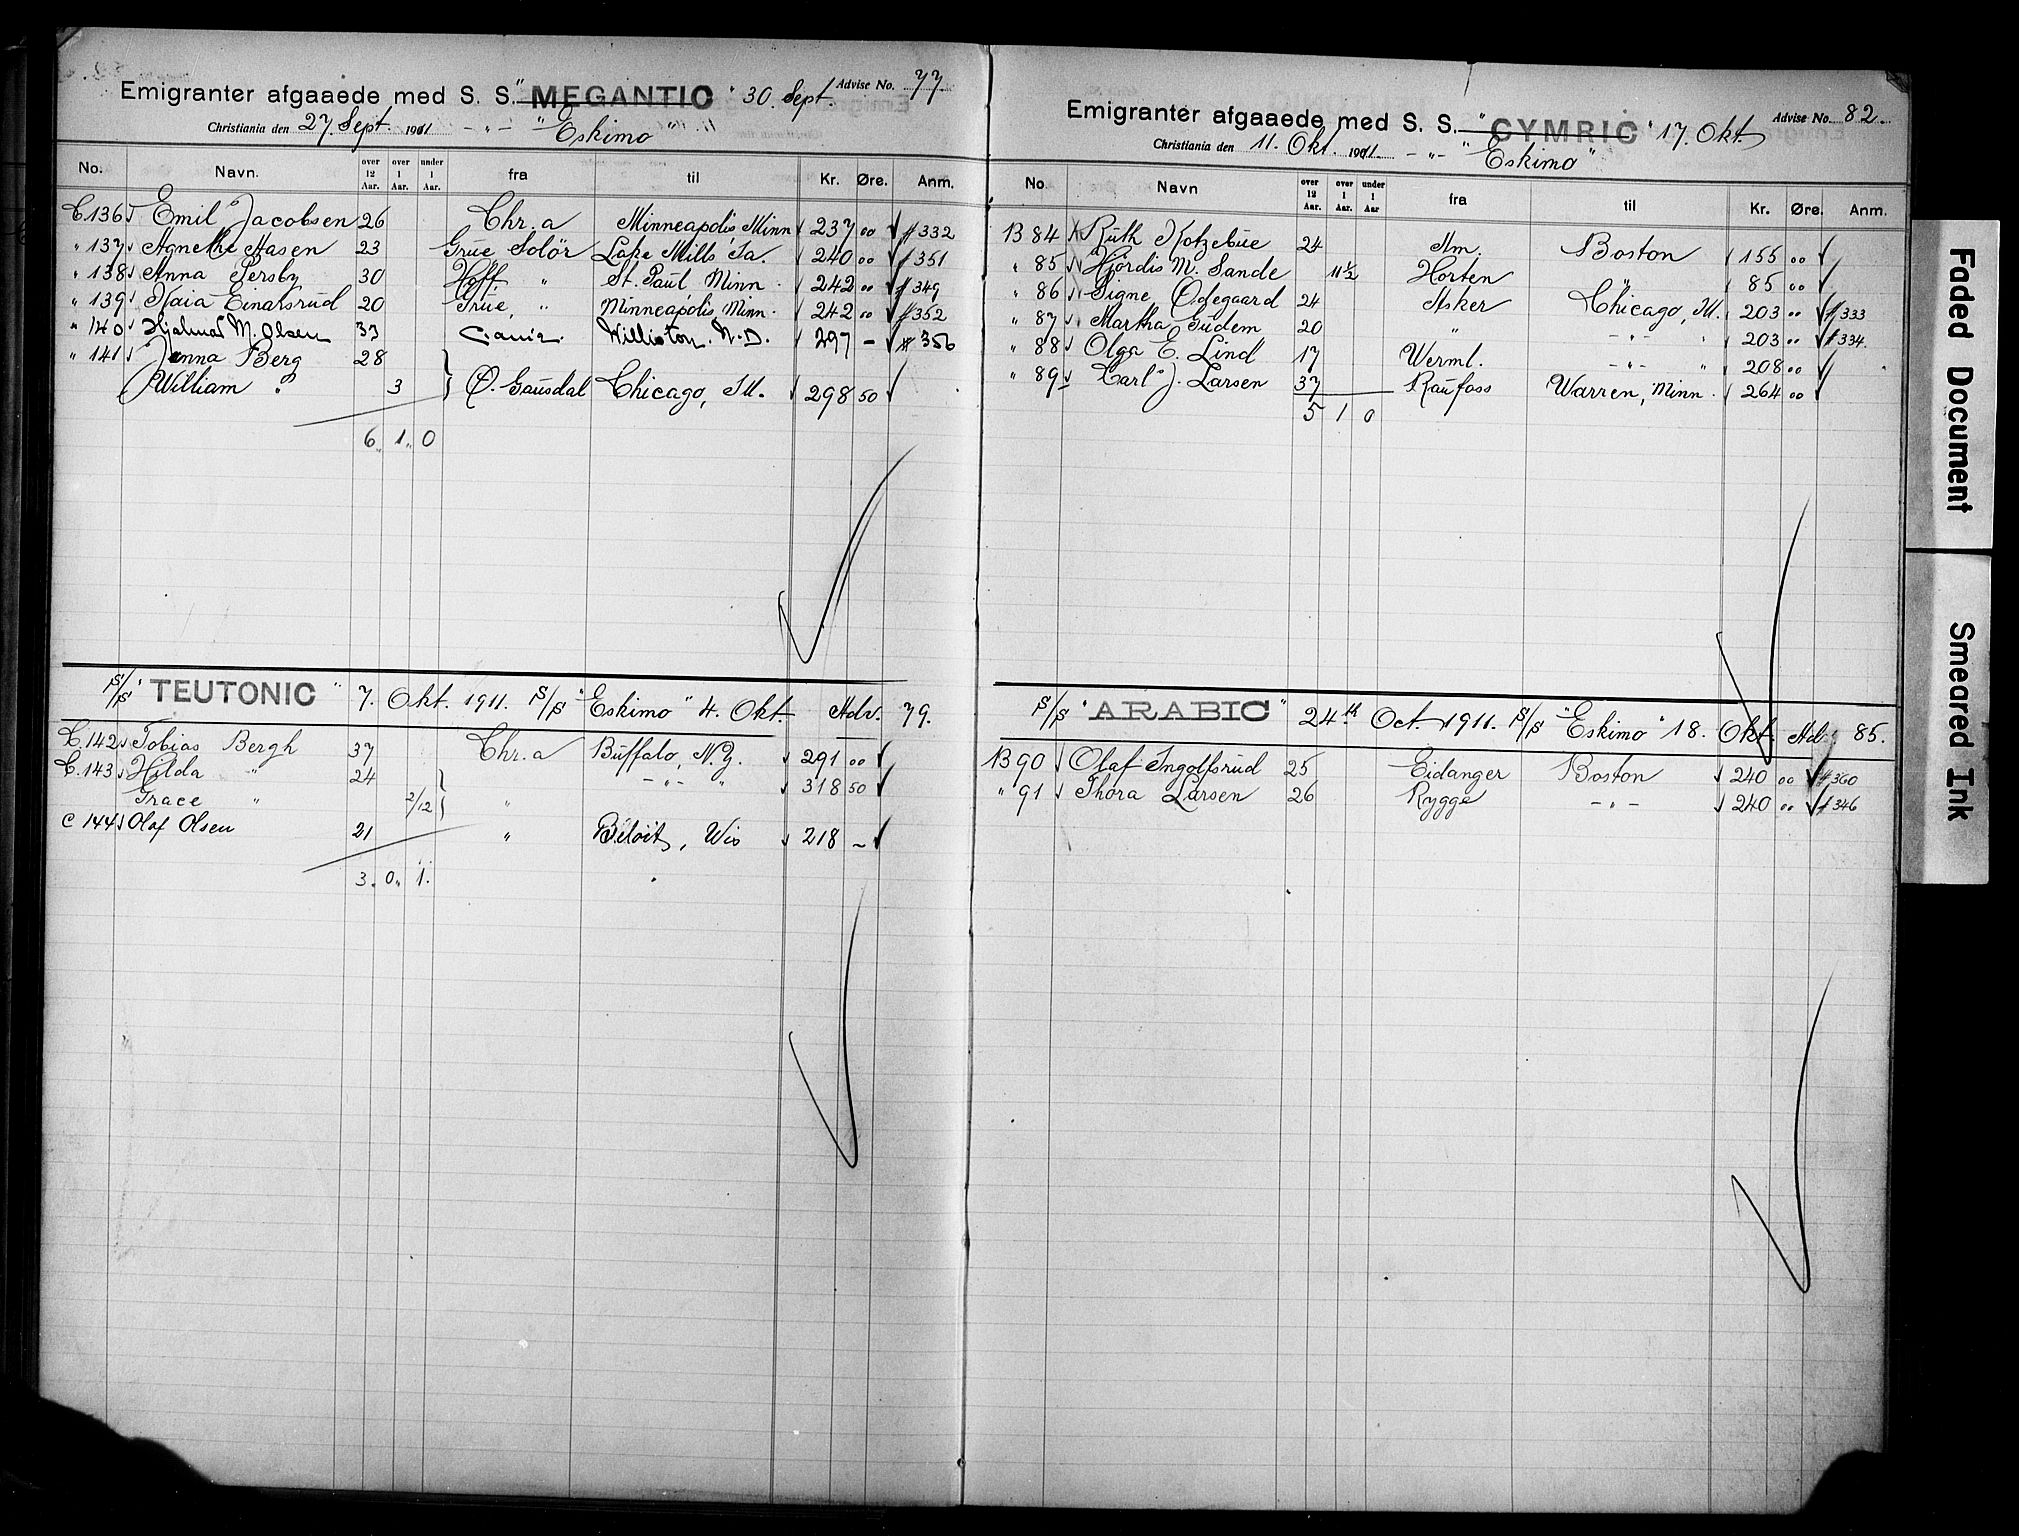 Emigranter afgaaede med S. S. "MEGANTIC" 30. Sept. Advise No. 77
Christiania den 27. Sept. 1911 - " - "Eskimo"
No. Navn. over 12 Aar. over 1 Aar. under 1 Aar. fra til Kr. Øre. Anm.
C 136 Emil Jacobsen 26 Chr.a Minneapolis Minn 237 00 # 332
" 137 Agnethe Aasen 23 Grue Solör Lake Mills Ia. 240 00 # 351
" 138 Anna Persby 30 Hoff. " St. Paul Minn. 242 00 # 349
" 139 Kaia Einarsrud 20 Grue, " Minneapolis, Minn. 242 00 # 352
" 140 Hjalmar M. Olsen 33 Williston. N.D. 297 - # 356
" 141 Jenna Berg 28
William " 3 Ö. Gausdal Chicago, Ill. 298 50
6 " 1 " 0
S/S "TEUTONIC" 7. Okt. 1911. S/S "Eskimo" 4. Okt. Adv. 79.
C. 142 Tobias Bergh 37 Chr.a Buffalo, N.Y. 291 00
C. 143 Hilda " 24 - " - " 318 50
Grace " 2/12 "
C 144 Olaf Olsen 21 " Beloit, Wis 218 -
3. 0. 1.
Emigranter afgaaede med S. S. "CYMRIC" 17. Okt. Advise No. 82.
Christiania den 11. Okt. 1911. - " - "Eskimo"
No. Navn over 12 Aar. over 1 Aar. under 1 Aar fra til Kr. Øre. Anm.
B 84 Ruth Kotzebue 24 Am. Boston 155 00
" 85 Hjördis M. Sande 11½ Horten " 85 00
" 86 Signe Ödegaard 24 Asker Chicago, Ill. 203 " # 333
" 87 Martha Gudem 20 " - " - " 203 00 # 334
" 88 Olga E. Lind 17 Werml. - " - " 208 00
" 89 Carl J. Larsen 37 Raufoss Warren, Minn. 264 00
5 1 0
S/S "ARABIC" 24th Oct. 1911. S/S "Eskimo" 18. Okt. Adv. 85.
B 90 Olaf Ingolfsrud 25 Eidanger Boston 240 00 # 360
" 91 Thora Larsen 26 Rygge - " - 240 00 # 346
Faded Document
Smeared Ink